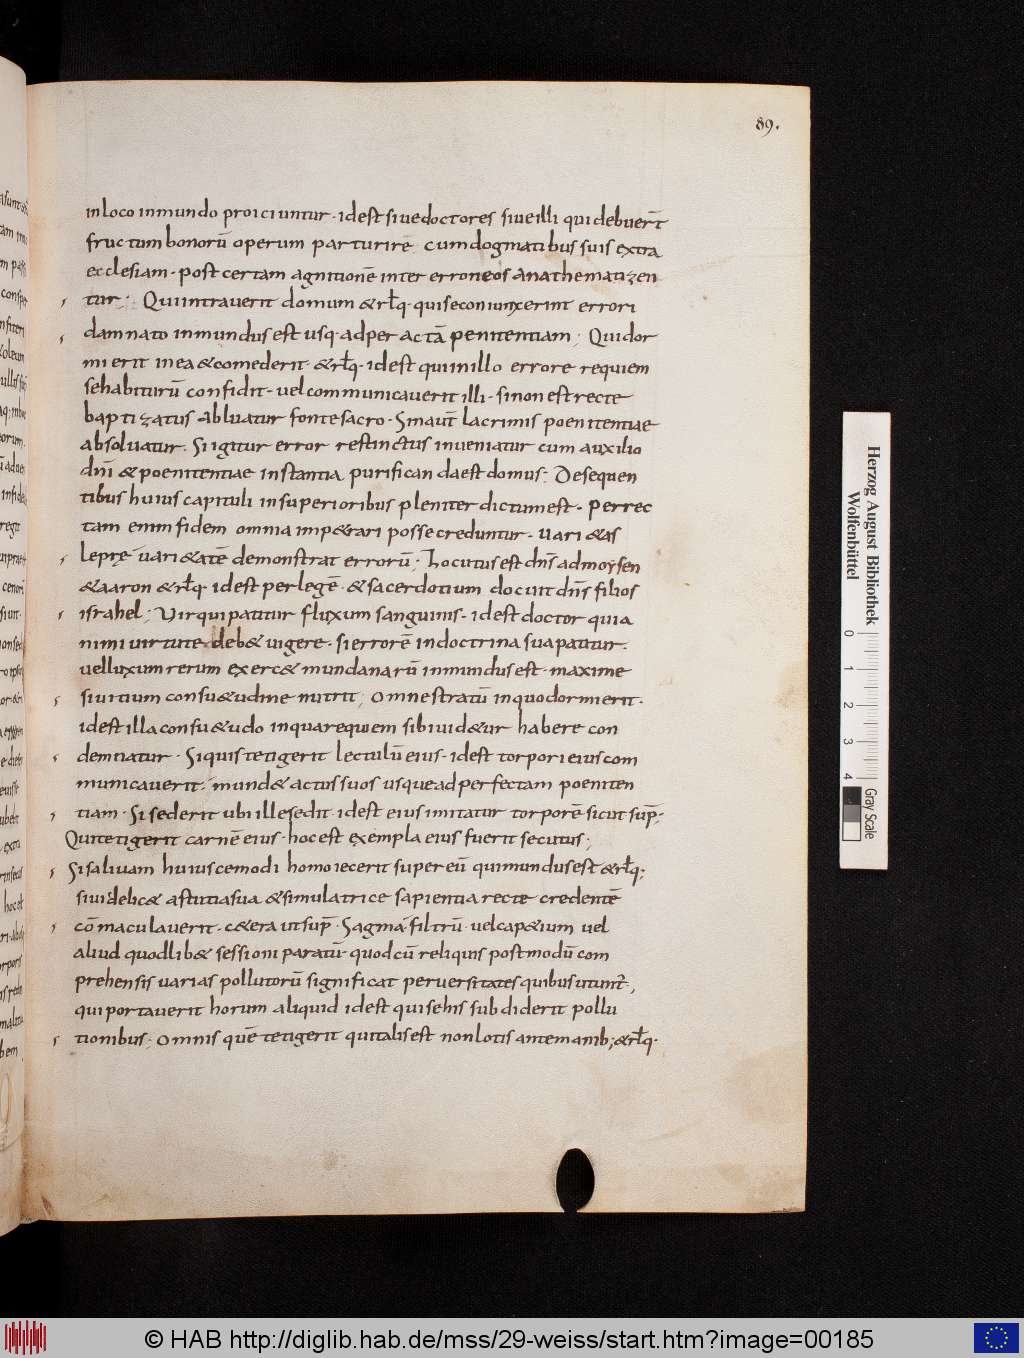 89.
in loco inmundo proiciuntur · id est siue doctores siue illi qui debuer̄t
fructum bonorū operum parturire cum dogmatibus suis extra
ecclesiam · post certam agnitionē inter erroneos anathematizen
tur ; Qui intrauerit domum & rł̄q · qui se coniunxerint errori
damnato inmundus est usq· ad peractā penitentiam ; Qui dor
mierit in ea & comederit · & rł̄q · id est qui in illo errore requiem
se habiturū confidit · uel communicauerit illi · si non est recte
baptizatus abluatur fonte sacro · Sin aut̄ lacrimis poenitentiae
absoluatur · Si igitur error restinctus inueniatur cum auxilio
dn̄i & poenitentiae instantia purificanda est domus ; De sequen
tibus huius capituli in superioribus pleniter dictum est · Perrec
tam enim fidem omnia imp&rari posse creduntur · Vari&as
leprę uari&atē demonstrat errorū ; Locutus est dn̄s ad moysen
& aaron & rł̄q · id est per legē · & sacerdotium docuit dn̄s filios
israhel ; Uir qui patitur fluxum sanguinis · id est doctor quia
nimi uirtute deb& uigere · si errorē in doctrina sua patitur ·
uel luxum rerum exerc& mundanarū inmundus est · maxime
si uitium consu&udine nutrit ; Omne stratū in quo dormierit ·
id est illa consu&udo in qua requiem sibi uid&ur habere con
demnatur · Si quis tetigerit lectulū eius · id est torpori eius com
municauerit · mund& actus suos usque ad perfectam poeniten
tiam · Si sederit ubi ille sedit · id est eius imitatur torporē sicut sup̄ ;
Qui tetigerit carnē eius · hoc est exempla eius fuerit secutus ;
Si saliuam huiuscemodi homo iecerit super eū qui mundus est & rł̄q ;
si uidelic& astutia sua & simulatrice sapientia recte credentē
cōmaculauerit · c&era ut sup̄ · Sagma · filtrū · uel cap&ium uel
aliud quodlib& sessioni paratū · quod cū reliquis postmodū com
prehensis uarias pollutorū significat peruersitates quibus utunt̄ ,
qui portauerit horum aliquid id est qui se his subdiderit pollu
tionibus ; Omnis quē tetigerit qui talis est non lotis ante manib; & rł̄q ·
Herzog August Bibliothek
Wolfenbüttel
0 1 2 3 4
Gray Scale
© HAB http://diglib.hab.de/mss/29-weiss/start.htm?image=00185